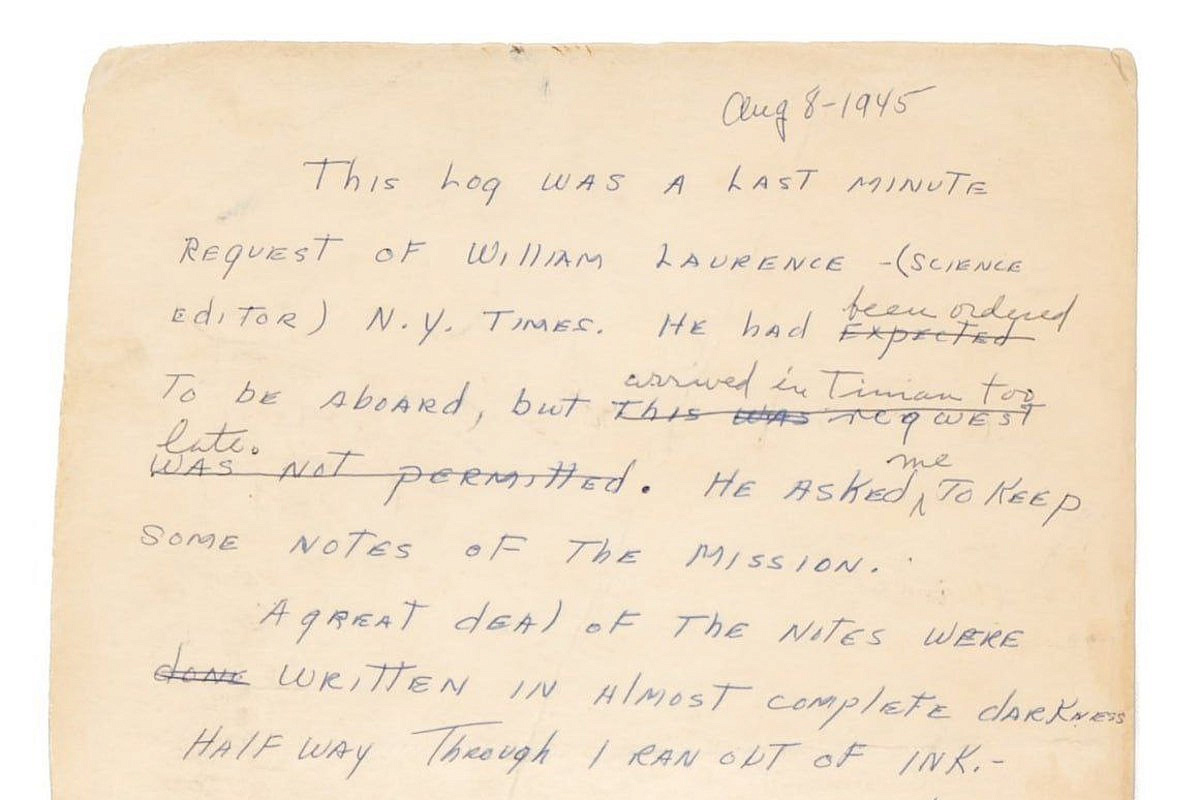 Aug 8-1945
This Log WAS A LAST MINUTE
REQUEST OF William LAURENCE -(SCIENCE
EdiTOR) N.Y. TIMES. HE had been ordered
EXPECTED
To bE AboARd, but arrived in Tinian too
This WAS reqUEST
late.
WAS NOT pERMITTEd. HE ASKEd me To KEEp
SOME NOTES OF ThE MISSION.
A gREAT dEAl OF ThE NOTES WERE
dONE WRITTEN IN AlMOST COMplETE dARKNESS
HAlF WAY Through I RAN OUT OF INK.-